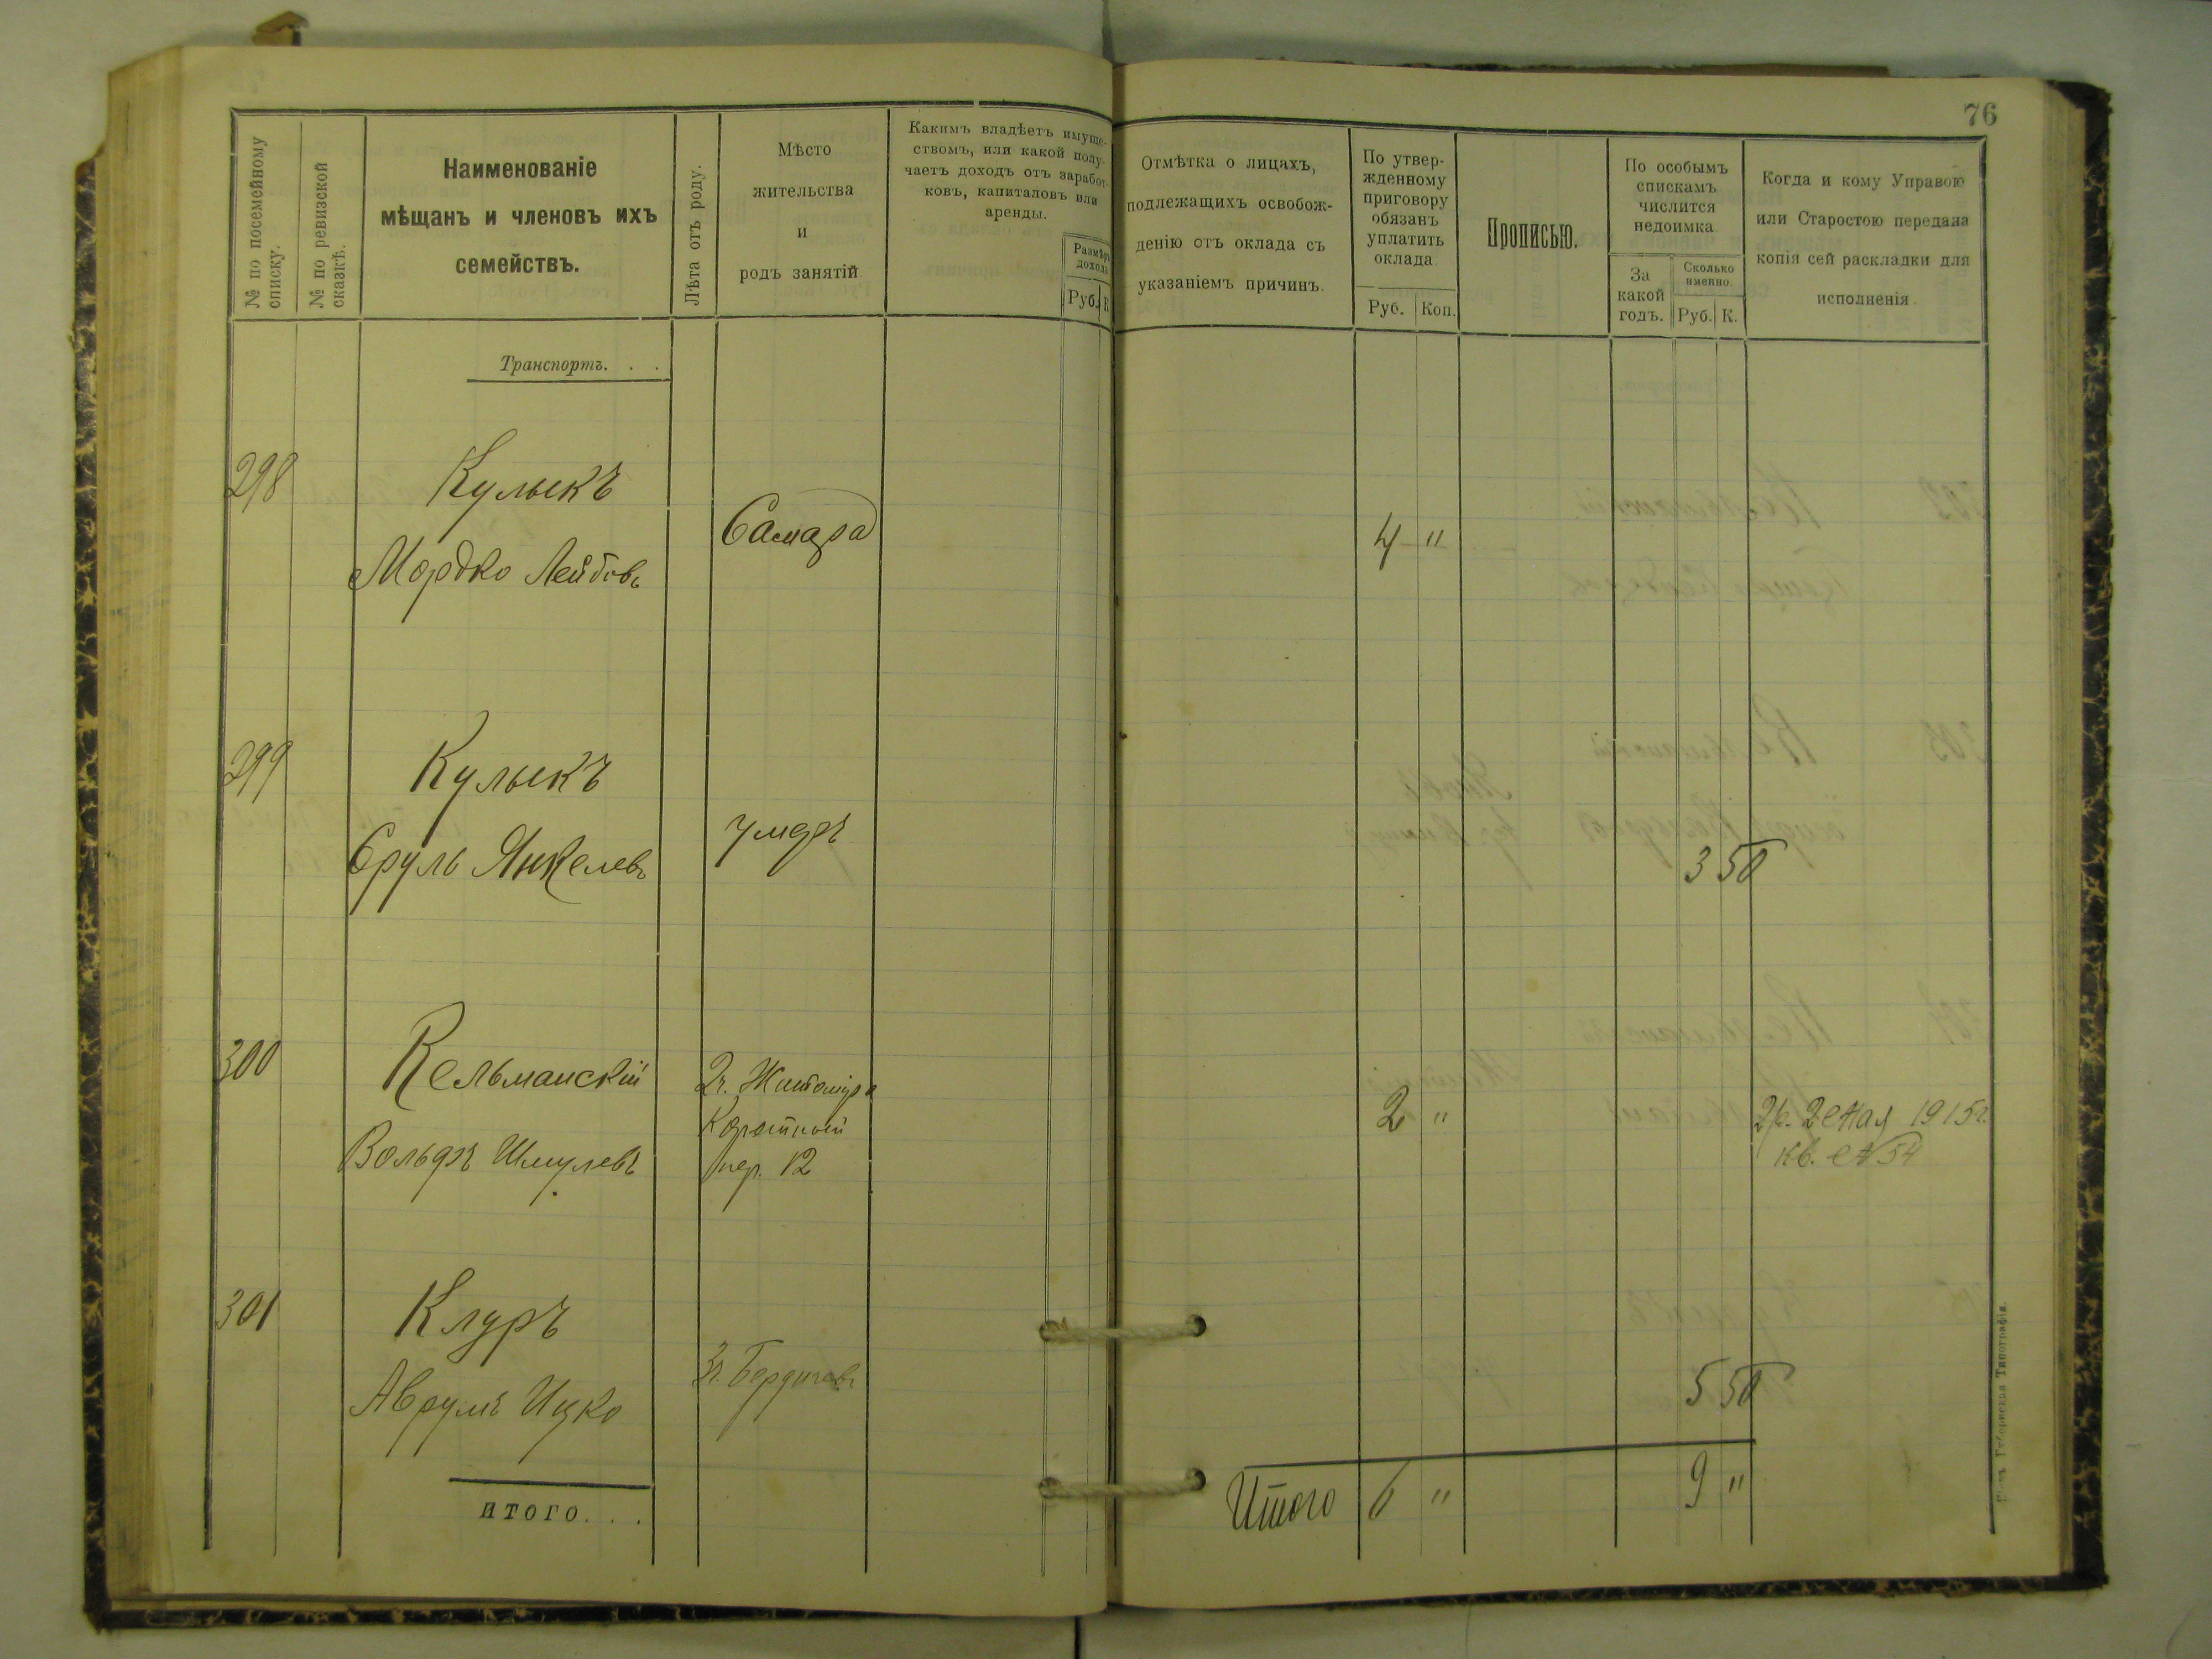 76
№ по посемейному
списку.
№ по ревизской
сказкѣ.
Наименованіе
мѣщанъ и членовъ ихъ
семействъ.
Лѣта отъ роду.
Мѣсто
жительства
и
родъ занятій.
Какимъ владѣетъ имуще-
ствомъ, или какой полу-
чаетъ доходъ отъ заработ-
ковъ, капиталовъ или
аренды.
Размѣръ
дохода
Руб. К
Отмѣтка о лицахъ,
подлежащихъ освобож-
денію отъ оклада съ
указаніемъ причинъ.
По утвер-
жденному
приговору
обязанъ
уплатить
оклада.
Руб. Коп.
Прописью.
По особымъ
спискамъ
числится
недоимка.
За
какой
годъ.
Сколько
именно.
Руб. К.
Когда и кому Управою
или Старостою передана
копія сей раскладки для
исполненія.
Транспортъ. . .
298 Кулыкъ
Мордко Лейбовъ Самара 4 "
299 Кулыкъ
Сруль Янкелевъ умеръ 3 50
300 Кельманскій
Вольфъ Шмулевъ
2ч. Житоміра
Коротный
пер. 12
2 "
2р. 2 Мая 1915г.
кв. № 54
301 Клуръ
Аврумъ Ицко Зг. Бердичевъ 5 50
итого. . .
Итого 6 " 9 "
Губернская Типографія.